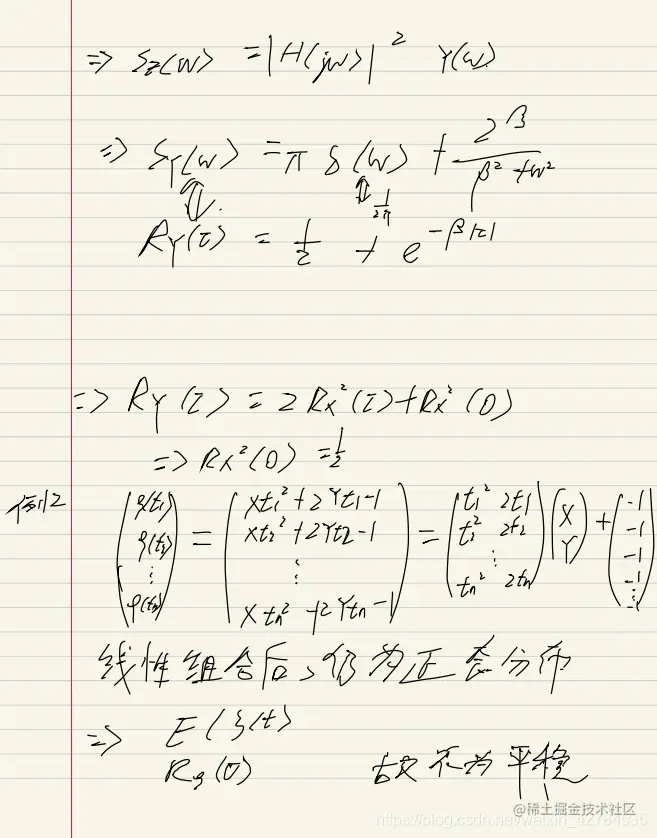 ⇒ S_Z(ω) = |H(jω)|² Y(ω)
⇒ S_Y(ω) = π δ(ω) + 2β / (β² + ω²)
⇕ ⇕ 1/2π
R_Y(τ) = 1/2 + e^{-β|τ|}
⇒ R_Y(τ) = 2R_X²(τ) + R_X²(0)
⇒ R_X²(0) = 1/2
例2
(ξ(t₁) ξ(t₂) ⋮ ξ(tₙ)) = (Xt₁² + 2Yt₁ - 1 Xt₂² + 2Yt₂ - 1 ⋮ Xtₙ² + 2Ytₙ - 1) = (t₁² 2t₁ t₂² 2t₂ ⋮ tₙ² 2tₙ) (X Y) + (-1 -1 -1 -1 ⋮ -1)
线性组合后,仍为正态分布
⇒ E(ξ(t)
R_ξ(0) 故不为平稳
@稀土掘金技术社区